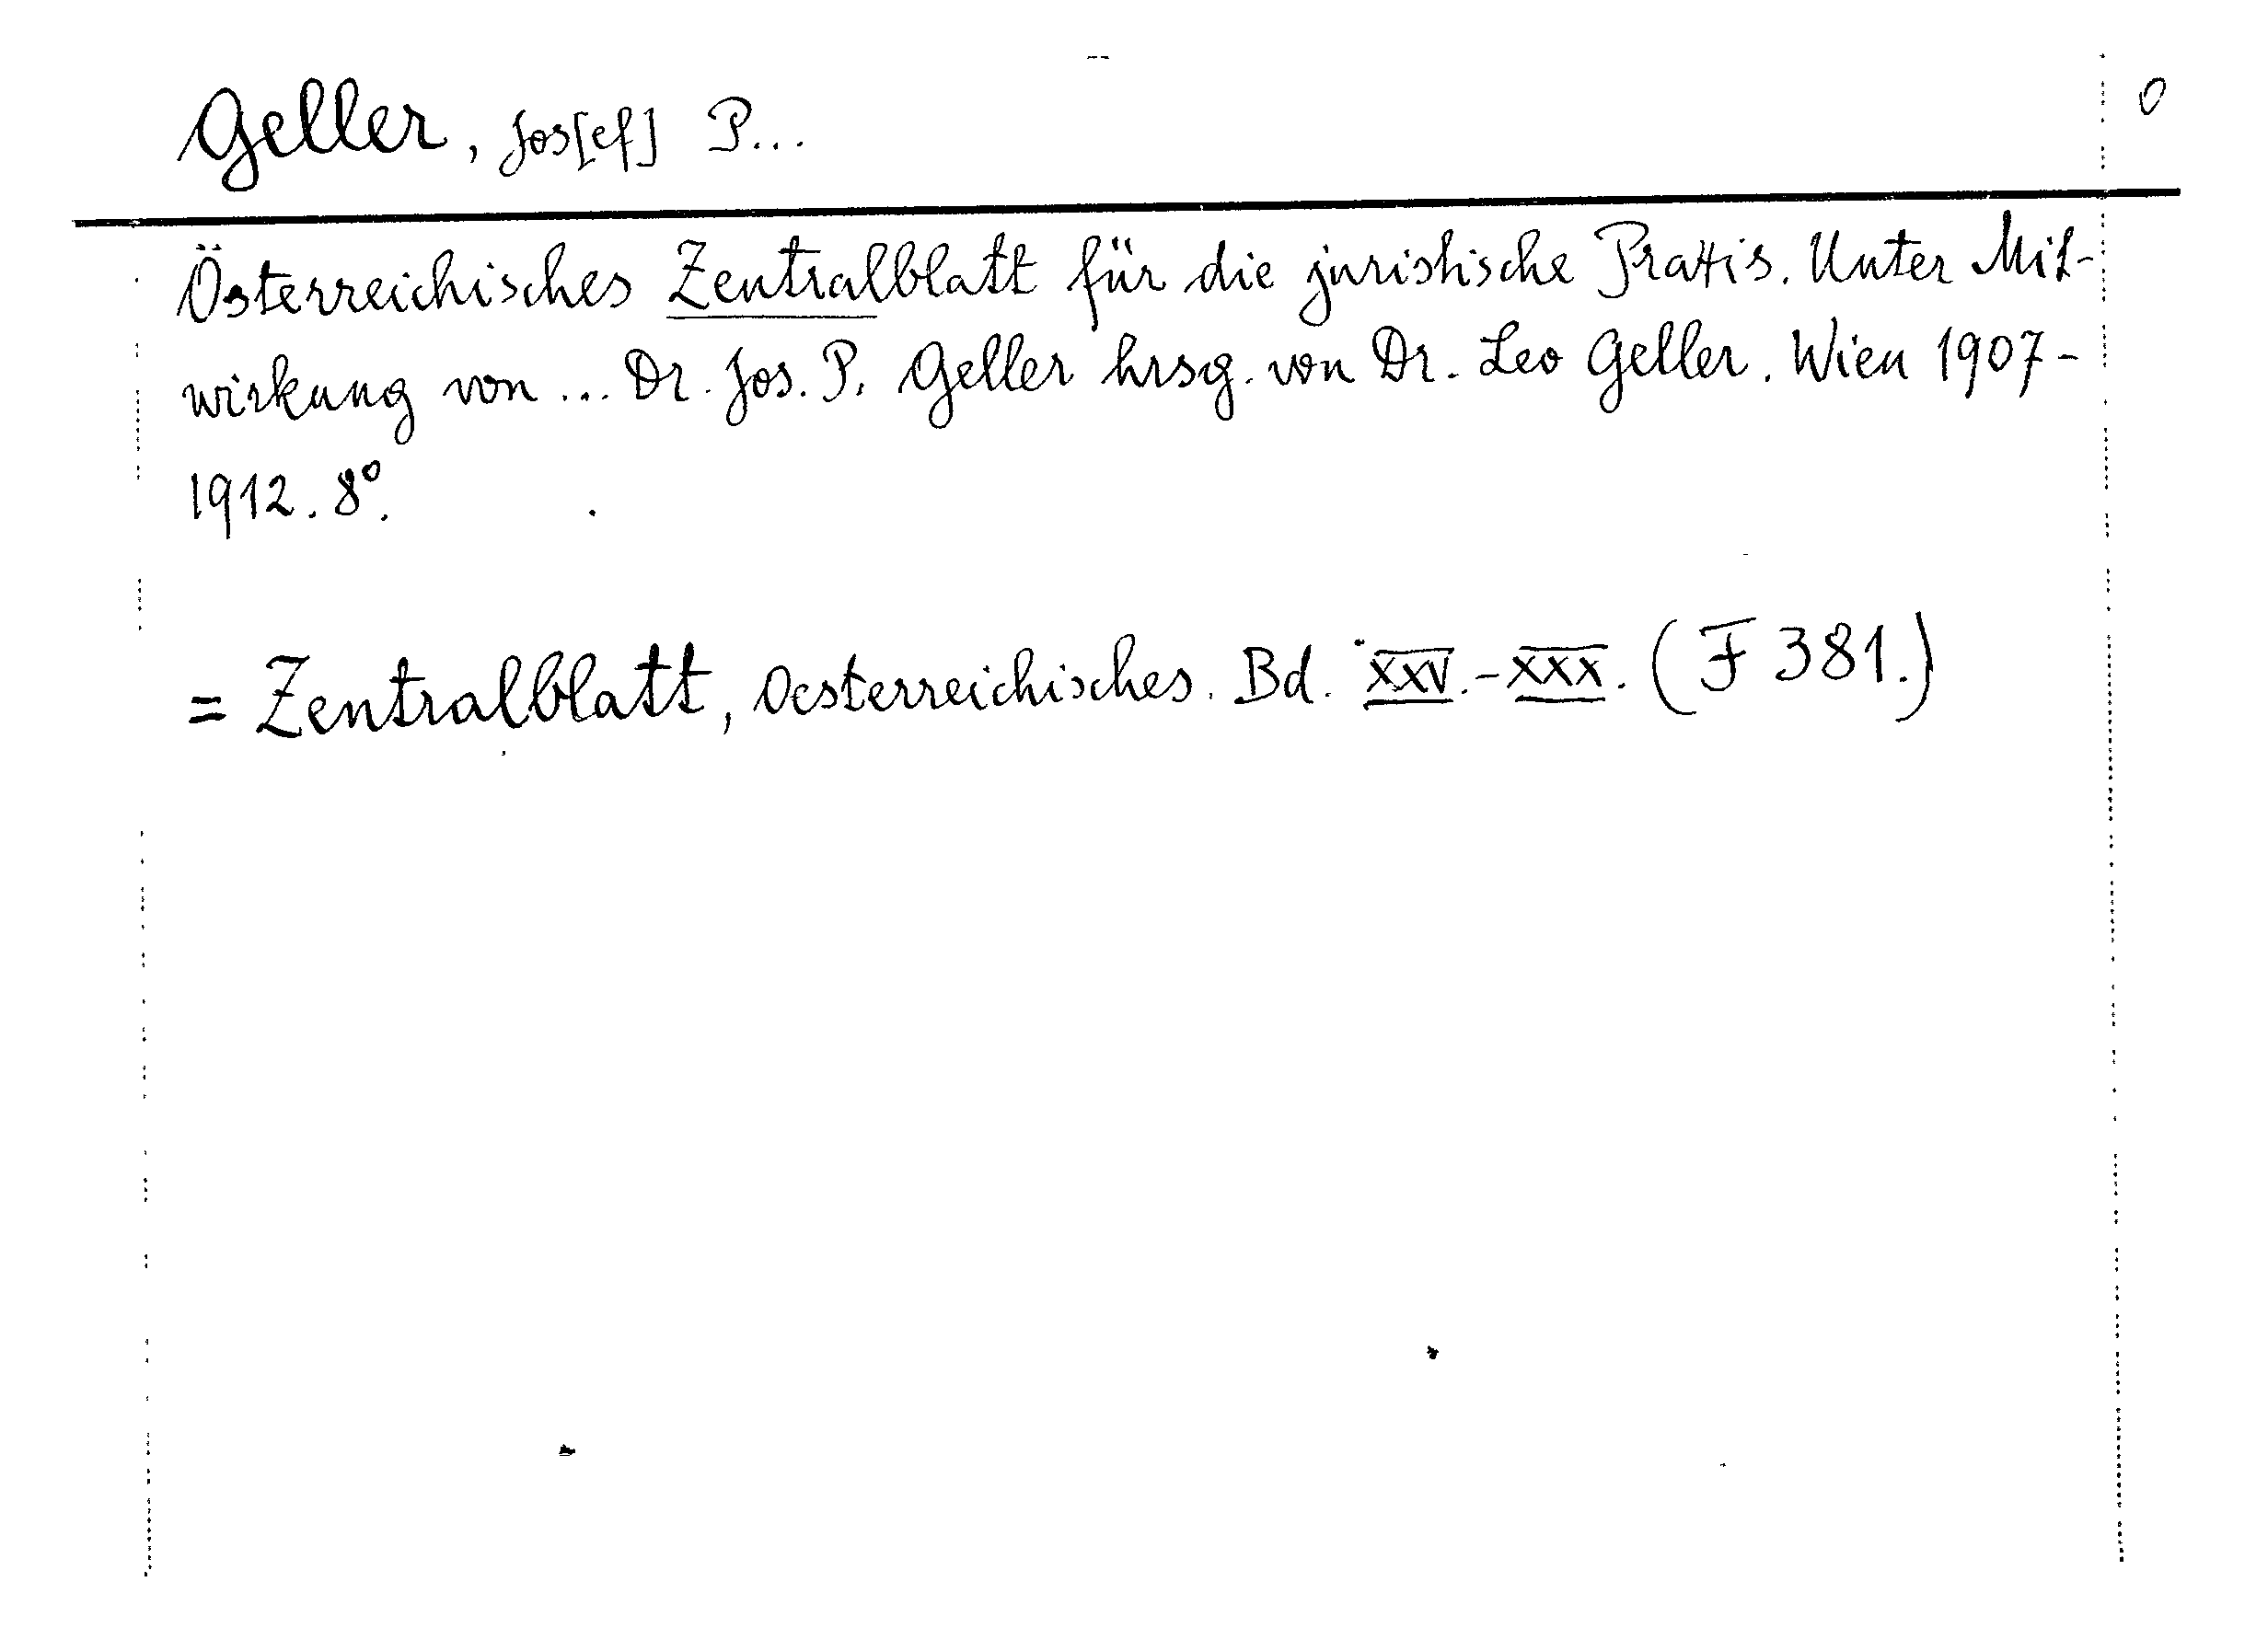 Geller, Jos[ef] P... 0
Österreichisches Zentralblatt für die juristische Praxis. Unter Mit-
wirkung von ... Dr. Jos. P. Geller hrsg. von Dr. Leo Geller. Wien 1907-
1912. 8°.
= Zentralblatt, Oesterreichisches. Bd. XXV.-XXX. (F 381.)